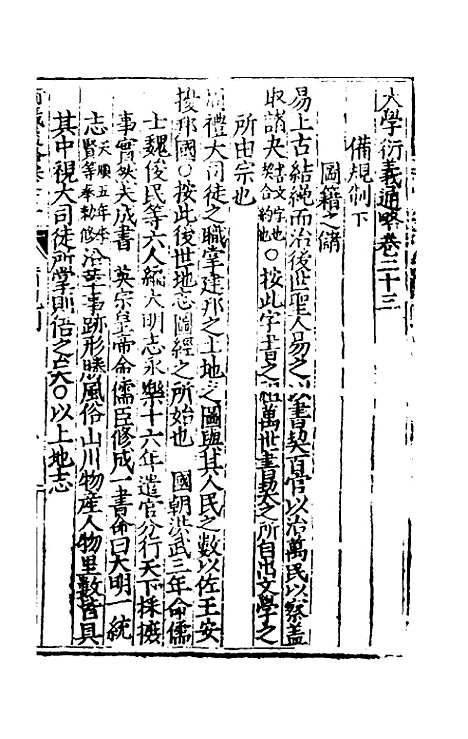 大學衍義通略卷二十三
備規制下
圖籍之儲
易上古結繩而治後世聖人易之以書契百官以治萬民以察蓋
取諸夬書文字也契合約也○按此字書之祖萬世書易大之所自出文學之
所由宗也
周禮大司徒之職掌建邦之土地之圖與其人民之數以佐王安
擾邦國○按此後世地志圖經之所始也 國朝洪武三年命儒
士魏俊民等六人編大明志永樂十六年遣官分行天下採摭
事實然未成書 英宗皇帝命儒臣修成一書命曰大明一統
志天順五年李賢等奉勅修沿革事跡形勝風俗山川物產人物里數皆具
其中視大司徒所掌則倍之矣○以上地志